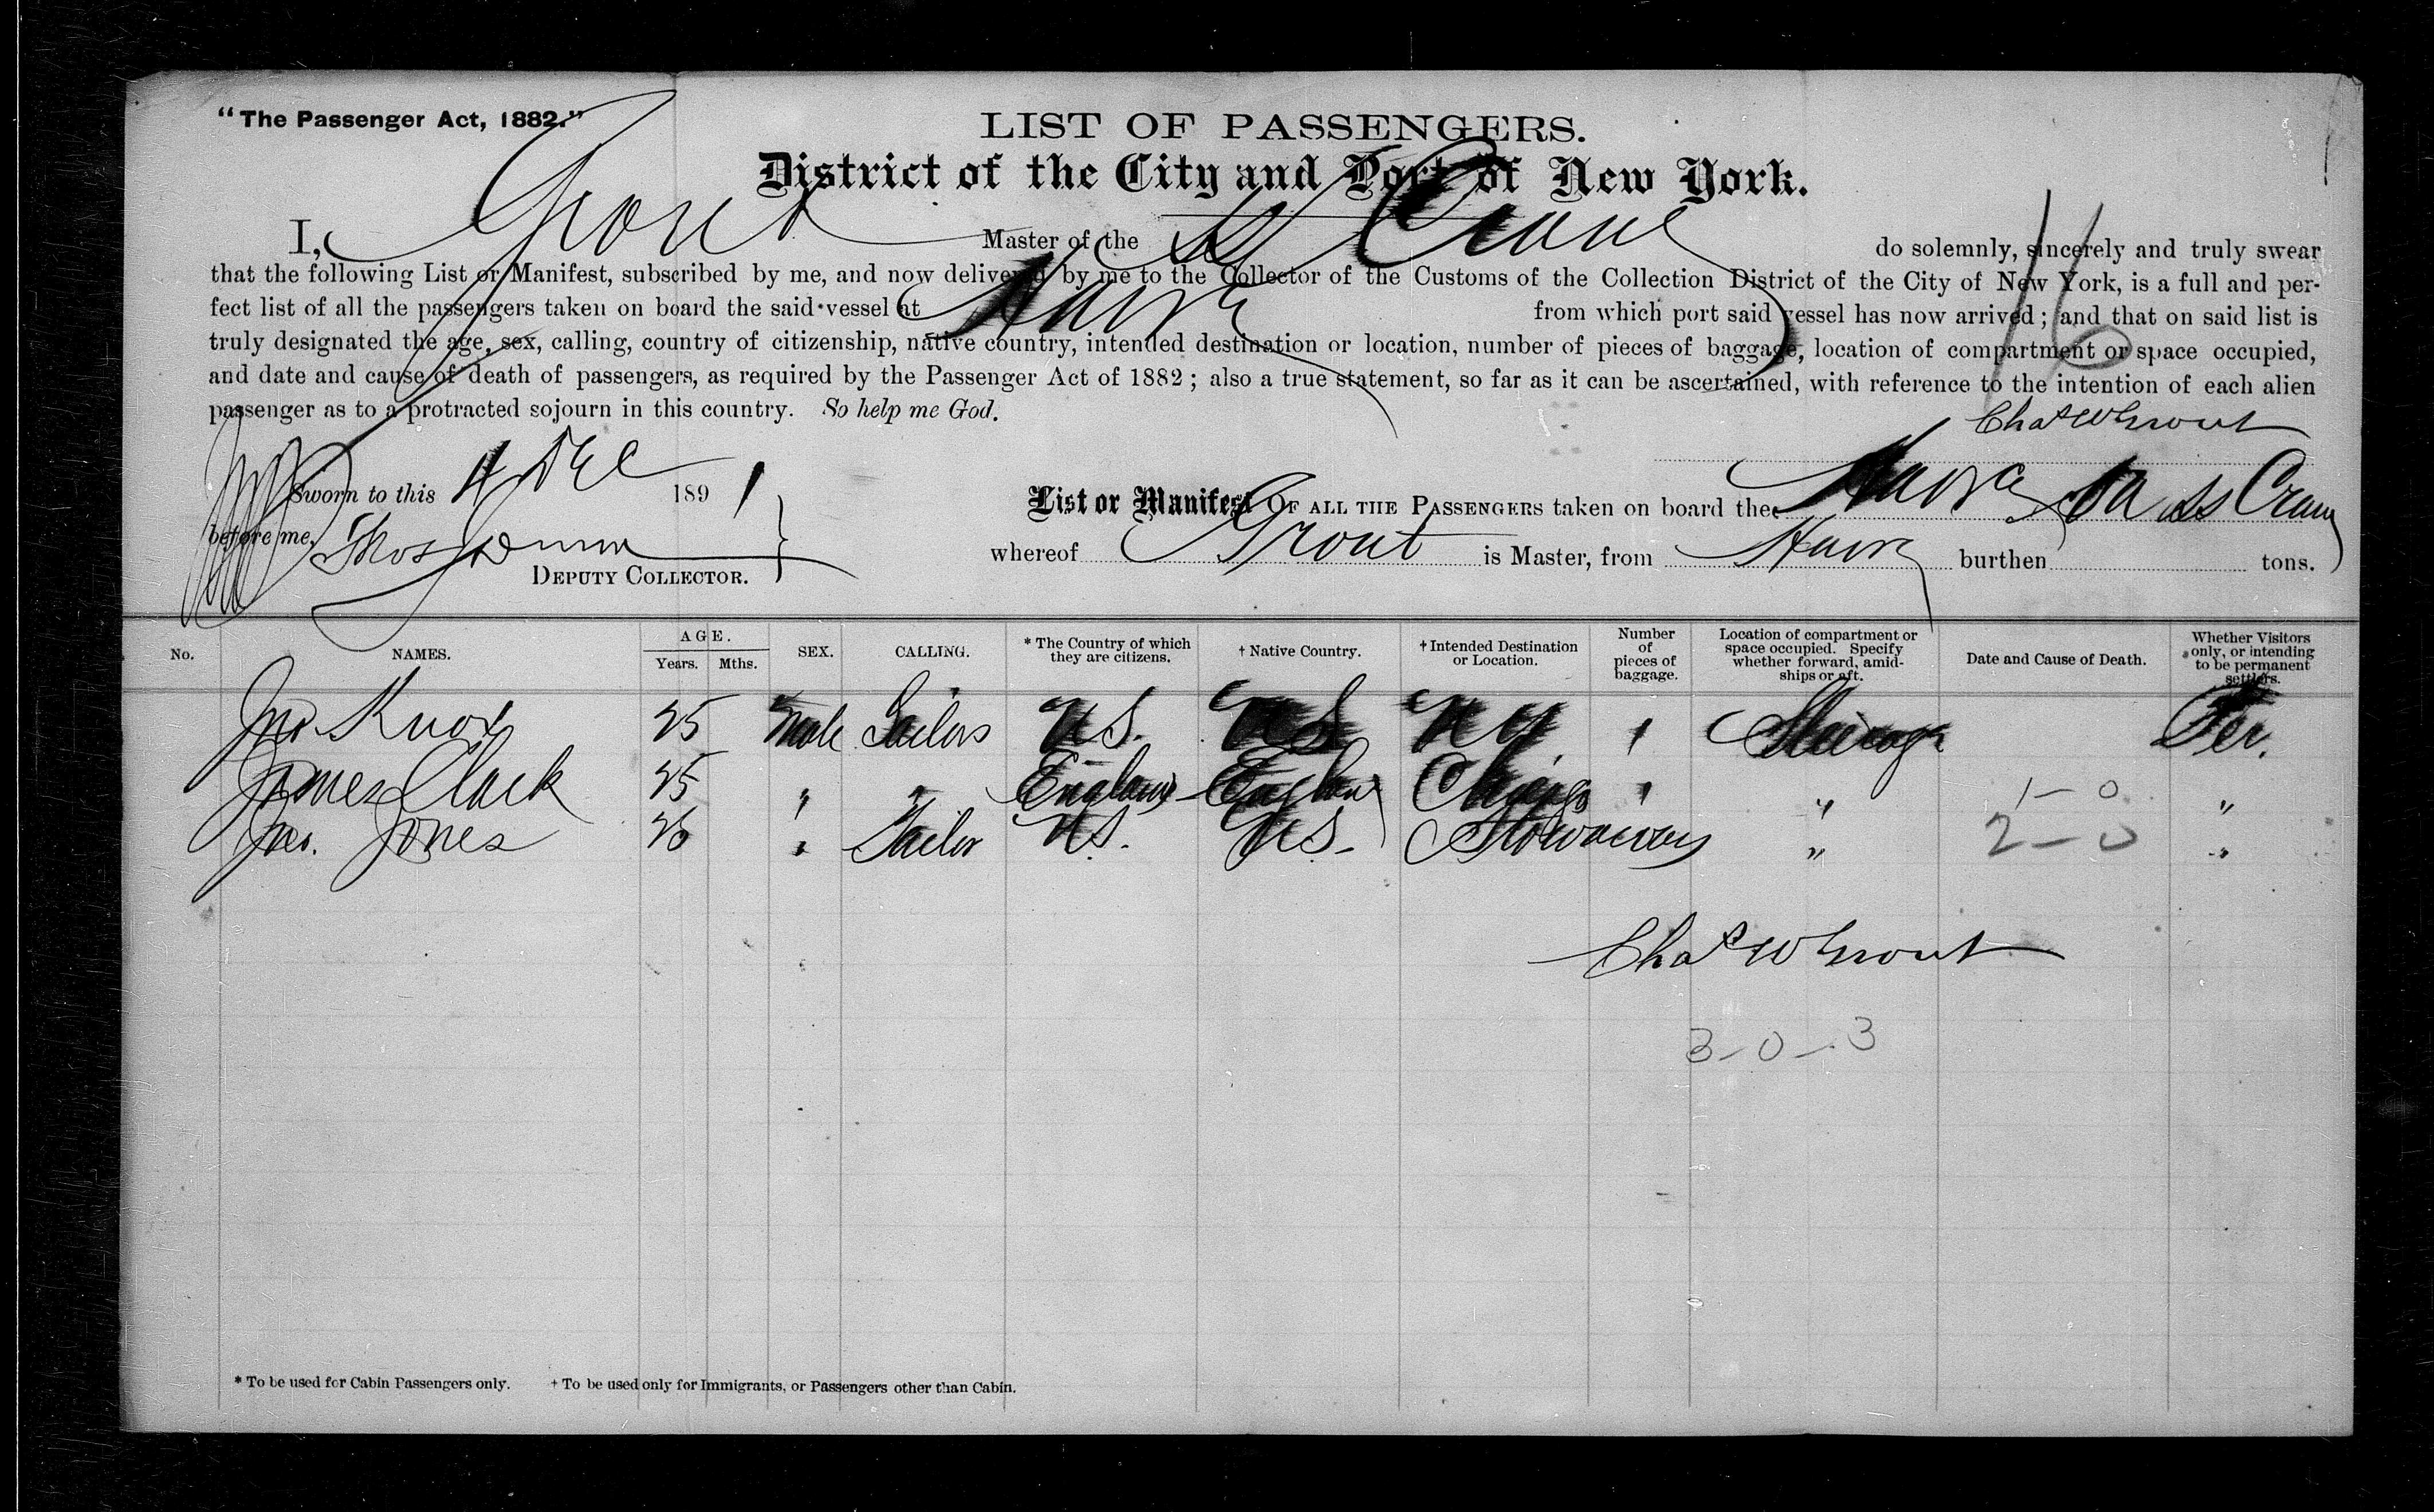 "The Passenger Act, 1882."
LIST OF PASSENGERS.
District of the City and Port of New York.
16
I, Grout Master of the SS Crane do solemnly, sincerely and truly swear
that the following List or Manifest, subscribed by me, and now delivered by me to the Collector of the Customs of the Collection District of the City of New York, is a full and per-
fect list of all the passengers taken on board the said vessel at Havre from which port said vessel has now arrived; and that on said list is
truly designated the age, sex, calling, country of citizenship, native country, intended destination or location, number of pieces of baggage, location of compartment or space occupied,
and date and cause of death of passengers, as required by the Passenger Act of 1882; also a true statement, so far as it can be ascertained, with reference to the intention of each alien
passenger as to a protracted sojourn in this country. So help me God.
Chas W Grout
Sworn to this 4 Dec 1891
before me, Thos Dunn
DEPUTY COLLECTOR.
List or Manifest OF ALL THE PASSENGERS taken on board the Havre SS Crane
whereof Grout is Master, from Havre burthen tons.
No. NAMES. AGE. Years. Mths. SEX. CALLING. * The Country of which they are citizens. † Native Country. † Intended Destination or Location. Number of pieces of baggage. Location of compartment or space occupied. Specify whether forward, amid-ships or aft. Date and Cause of Death. Whether Visitors only, or intending to be permanent settlers.
Jno. Knox 25 Male Sailors U.S. U S N Y 1 Steerage Per.
James Clark 25 " " England England Chicago 1 " 1-0 "
Jas. Jones 26 " Sailor U.S. U.S. Stowaway " 2-0 "
Chas W Grout
3-0-3
* To be used for Cabin Passengers only. † To be used only for Immigrants, or Passengers other than Cabin.